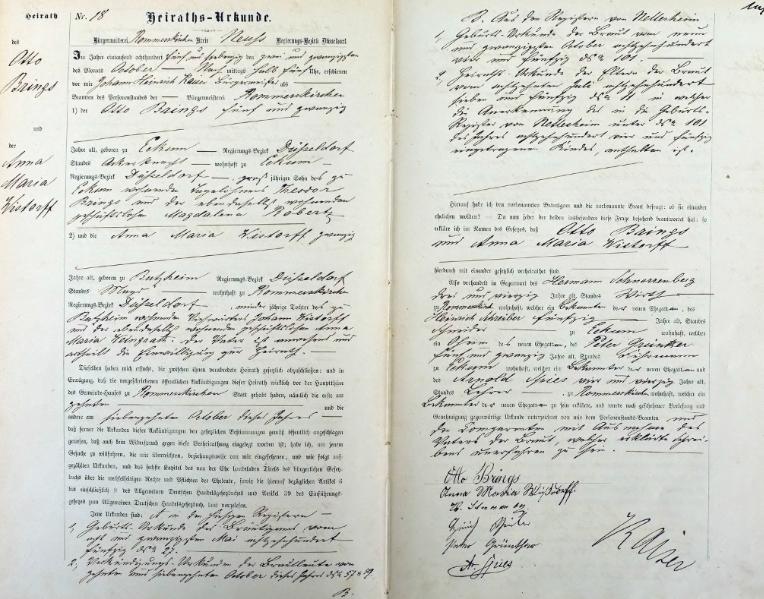 Heirath
des
Otto
Brings
und
der
Anna
Maria
Wistorff
Nr. 18
Heiraths-Urkunde.
Bürgermeisterei Rommerskirchen Kreis Neuss Regierungs-Bezirk Düsseldorf
Im Jahre eintausend achthundert fünf und siebenzig den zwei und zwanzigsten
des Monats October Nachmittags halb fünf Uhr, erschienen
vor mir Johann Heinrich Bürgermeister als
Beamten des Personenstandes der Bürgermeisterei Rommerskirchen
1) der Otto Brings fünf und zwanzig
Jahre alt, geboren zu Eckum Regierungs-Bezirk Düsseldorf
Standes Ackerknecht wohnhaft zu Eckum
Regierungs-Bezirk Düsseldorf, großjähriger Sohn des zu
Eckum wohnenden Tagelöhners Theodor
Brings und der ebendaselbst wohnenden
geschäftslosen Magdalena Robertz
2) und die Anna Maria Wistorff zwanzig
Jahre alt, geboren zu Butzheim Regierungs-Bezirk Düsseldorf
Standes Magd wohnhaft zu Rommerskirchen
Regierungs-Bezirk Düsseldorf minderjährige Tochter des zu
Butzheim wohnenden Johann Wistorff
und der ebendaselbst wohnenden geschäftslosen Anna
Maria der Vater ist anwesend und
ertheilt die Einwilligung zur Heirath.
Dieselben haben mich ersucht, die zwischen ihnen verabredete Heirath gesetzlich abzuschließen; und in
Erwägung, daß die vorgeschriebenen öffentlichen Ankündigungen dieser Heirath wirklich vor der Hauptthüre
des Gemeinde-Hauses zu Rommerskirchen Statt gehabt haben, nämlich die erste am
zehnten und die
andere am siebenzehnten October dieses Jahres
daß ferner die Urkunden dieser Ankündigungen den gesetzlichen Bestimmungen gemäß öffentlich angeschlagen
gewesen, daß auch kein Widerspruch gegen diese Heirath eingelegt worden ist; habe ich, um jenem
Gesuche zu willfahren, die mir überreichten, beziehungsweise von mir eingesehenen, und wie folgt auf-
gezählten Urkunden, und das sechste Kapitel des von der Ehe handelnden Titels des bürgerlichen Gesetz-
buchs über die wechselseitigen Rechte und Pflichten der Eheleute, sowie die hierauf bezüglichen Artikel 6
bis einschließlich des Allgemeinen Deutschen Handelsgesetzbuches und Artikel 39 des Einführungs-
gesetzes zum Allgemeinen Deutschen Handelsgesetzbuch, laut vorgelesen.
Jene Urkunden sind: A in den hiesigen Registern
1, Geburts-Urkunde des Bräutigams vom
acht und zwanzigsten Mai achtzehnhundert
fünfzig No 27.
2, Verkündigungs-Urkunden der Brautleute vom
zehnten und siebenzehnten October dieses Jahres No 57 & 59
B.
B. Aus den Registern von Nettesheim
1, Geburts-Urkunde der Braut vom neun
und zwanzigsten October achtzehnhundert
vier und fünfzig No 101.
2, Heiraths-Urkunde der Eltern der Braut
vom achtzehnten Juli achtzehnhundert
sieben und fünfzig No 11 in welcher
die Anerkennung des in die Geburts-
Register von Nettesheim unter No 101
des Jahres achtzehnhundert vier und fünfzig
eingetragenen Kindes, enthalten ist.
Hierauf habe ich den vorbenannten Bräutigam und die vorbenannte Braut befragt: ob sie einander
ehelichen wollten? Da nun jeder der beiden insbesondere diese Frage bejahend beantwortet hat: so
erkläre ich im Namen des Gesetzes, daß Otto Brings
und Anna Maria Wistorff
hierdurch mit einander gesetzlich verheirathet sind.
Also verhandelt in Gegenwart des Hermann Schnorrenberg
drei und vierzig Jahre alt, Standes Wirth
zu Rommerskirchen wohnhaft, welcher ein Bekannter der neuen Ehegatten, des
Heinrich Schreiber fünfzig Jahre alt, Standes
Schneider zu Eckum wohnhaft, welcher
ein Oheim des neuen Ehegatten, des Peter
fünf und zwanzig Jahre alt, Standes
zu Eckum wohnhaft, welcher ein Bekannter der neuen Ehegatten und
des Arnold Spies vier und vierzig Jahre alt,
Standes Lehrer zu Rommerskirchen wohnhaft, welcher ein
Bekannter der neuen Ehegatten zu sein erklärte, und wurde nach geschehener Vorlesung und
Genehmigung gegenwärtige Urkunde unterzeichnet von mir dem Personenstands-Beamten und
den Comparenten mit Ausnahme des
Vaters der Braut, welcher erklärte Schrei-
bens unerfahren zu sein.
Otto Brings
Anna Maria Wistorff
Peter
A. Spies